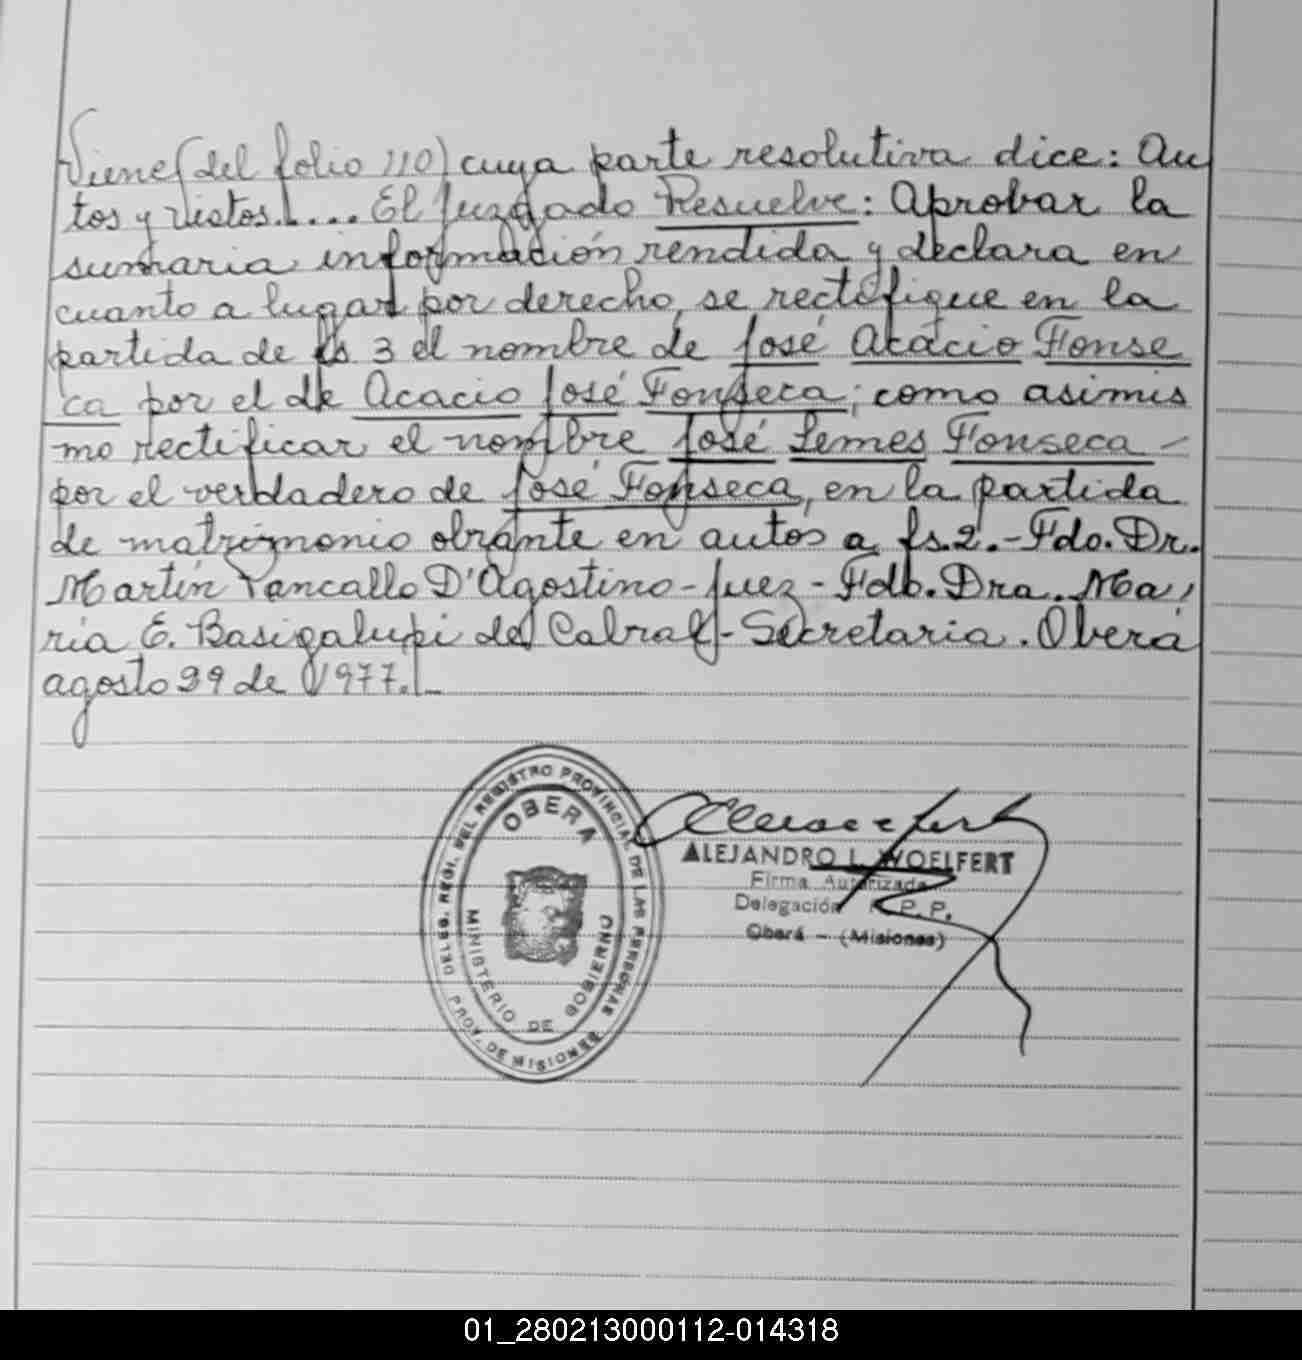 Viene (del folio 110) cuya parte resolutiva dice: Au
tos y vistos..... El Juzgado Resuelve: Aprobar la
sumaria información rendida y declara en
cuanto a lugar por derecho, se rectifique en la
partida de fs 3 el nombre de José Acacio Fonse
ca por el de Acacio José Fonseca; como asimis
mo rectificar el nombre José Lemes Fonseca -
por el verdadero de José Fonseca, en la partida
de matrimonio obrante en autos a fs. 2.- Fdo. Dr.
Martín Yancallo D'Agostino - Juez - Fdo. Dra. Ma,
ria E. Basigalupi de Cabral - Secretaria. Oberá
agosto 29 de 1977.-
DELEG. REGI. DEL REGISTRO PROVINCIAL DE LAS PERSONAS
OBERA
MINISTERIO DE GOBIERNO
PROV. DE MISIONES
ALEJANDRO L. WOELFERT
Firma Autorizada
Delegación R.P.P.
Oberá - (Misiones)
01_280213000112-014318